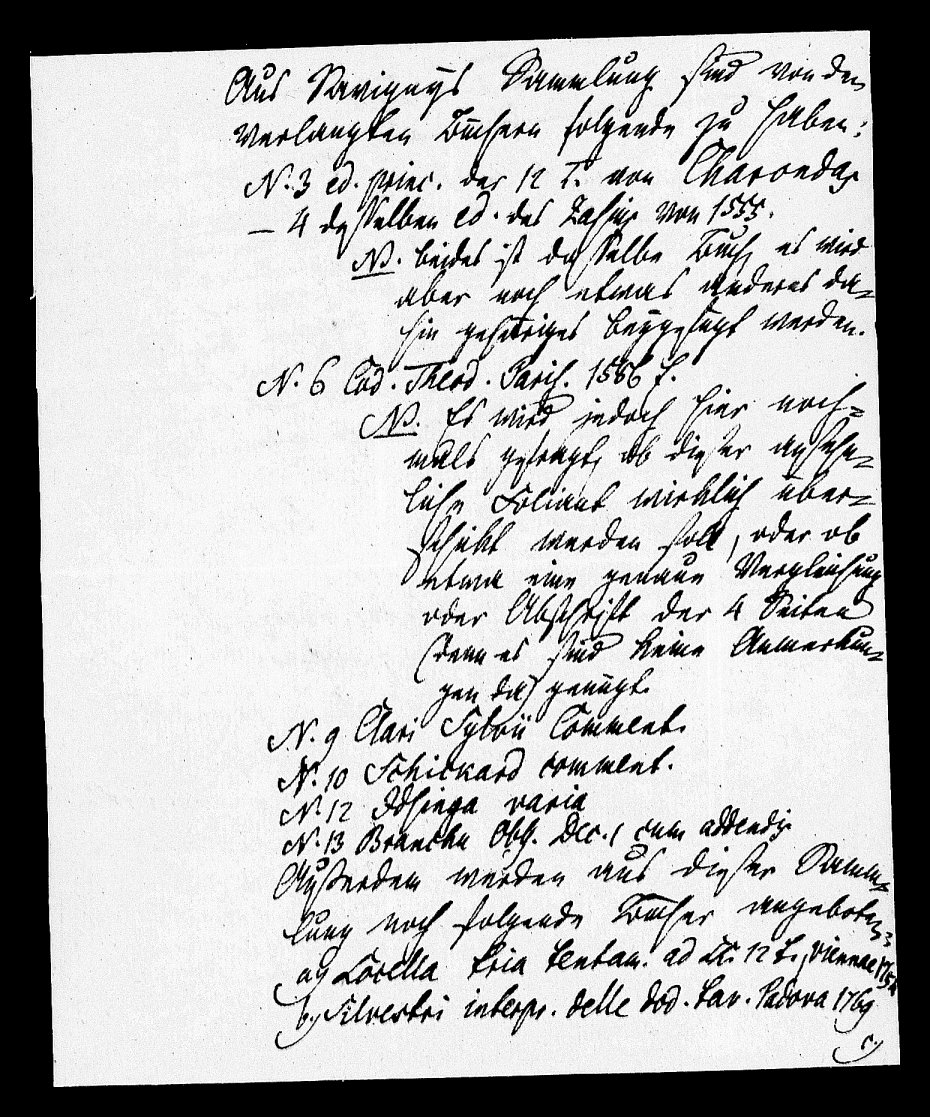 Aus Savignys Sammlung sind von den
verlangten Büchern folgende zu haben:
N. 3 ed. princ. der 12 T. von Charondas
— 4 desselben ed. des Zasius von 1555.
NB. beides ist dasselbe Buch, es wird
aber noch etwas anderes da-
hin gehöriges beygefügt werden.
N. 6 Cod. Theod. Paris. 1586 f.
NB. Es wird jedoch hier noch-
mals gefragt, ob dieser ansehn-
liche Foliant wirklich über-
schickt werden soll, oder ob
etwa eine genaue Vergleichung
oder Abschrift der 4 Seiten
(denn es sind keine Anmerkun-
gen da) genügt.
N. 9 Clari Sylvii Comment.
N. 10 Schickard comment.
N. 12 Idsinga varia
N. 13 Branchu Obs. Dec. 1 cum addendis
Außerdem werden aus dieser Samm-
lung noch folgende Bücher angeboten:
a) Locella tria tentam. ad LL. 12 t. Viennae
b) Silvestri interpr. delle dod. tav. Padova 1769
c)